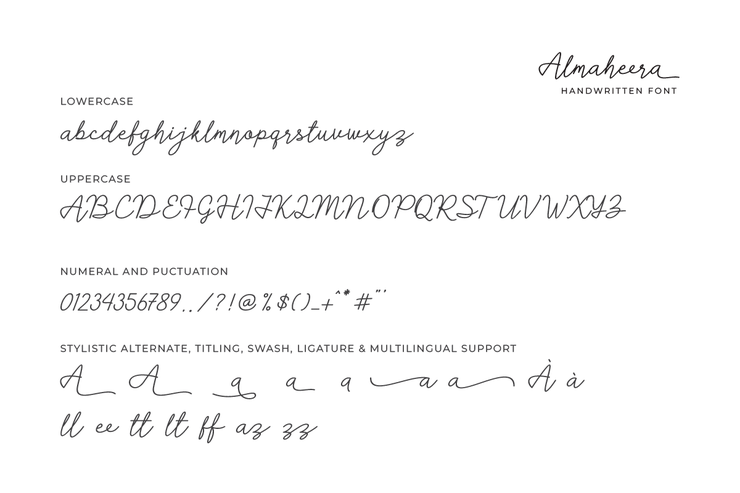 Almaheera
HANDWRITTEN FONT
LOWERCASE
abcdefghijklmnopqrstuvwxyz
UPPERCASE
ABCDEFGHIJKLMNOPQRSTUVWXYZ
NUMERAL AND PUCTUATION
01234356789../?!@%$()_+^*#"'
STYLISTIC ALTERNATE, TITLING, SWASH, LIGATURE & MULTILINGUAL SUPPORT
A A a a a a a À à
ll ee tt lt ff az zz